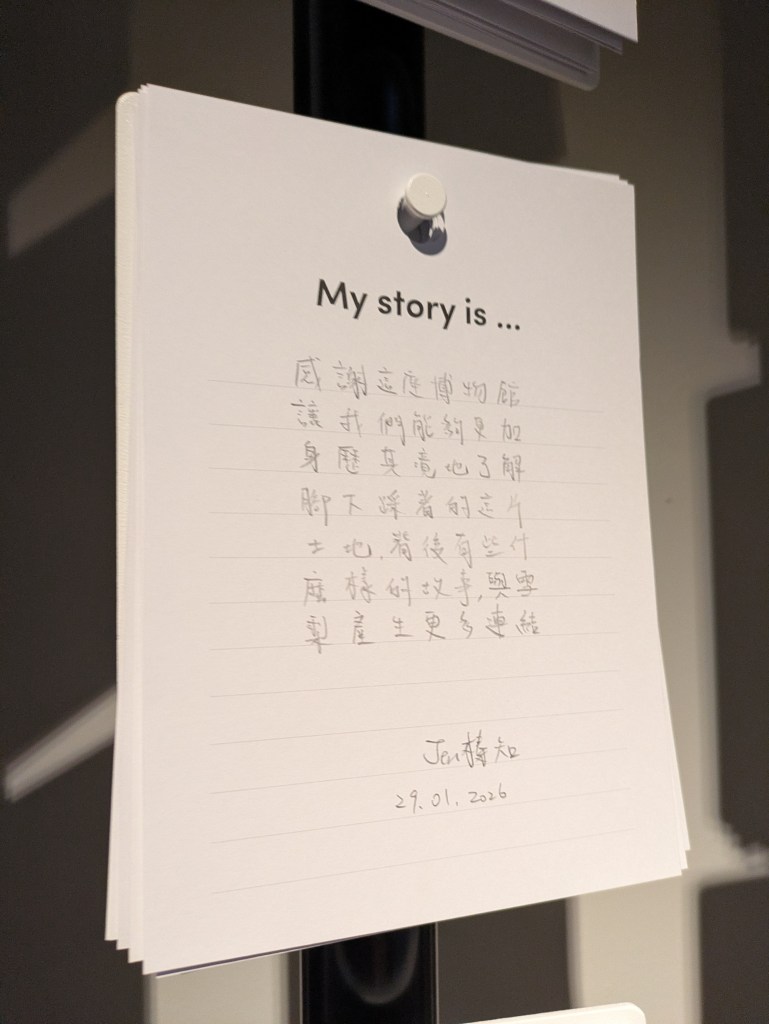 My story is ...
感謝這座博物館
讓我們能夠更加
身歷其境地了解
腳下踩著的這片
土地,背後有些什
麼樣的故事,與雪
梨產生更多連結
Jen 知
29.01.2026